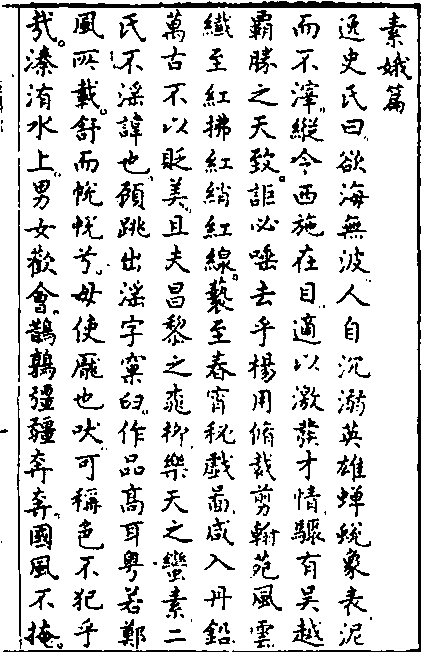 素娥篇
逸史氏曰欲海無波人自沉溺英雄蟬蛻象表泥
而不滓縱令西施在目適以激發才情驟有吳越
霸勝之天致詎必唾去乎楊用脩裁剪翰苑風雲
纖至紅拂紅綃紅線褻至春宵秘戲啚咸入丹鉛
萬古不以貶美且夫昌黎之桃柳樂天之蠻素二
氏不淫諱也願跳出淫字窠臼作品高耳粤若鄭
風所載舒而帨帨兮毋使厖也吠可稱色不犯乎
哉溱洧水上男女歡會鵲鶉彊彊奔奔國風不掩